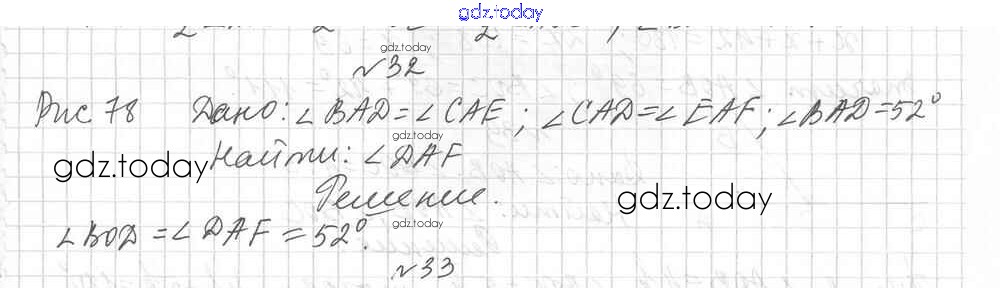 gdz.today
gdz.today
№32
Рис 78 Дано: ∠BAD=∠CAE; ∠CAD=∠EAF; ∠BAD=52°
gdz.today
gdz.today Найти: ∠DAF
Решение. gdz.today
gdz.today
∠BOD=∠DAF=52°.
№33
gdz.today